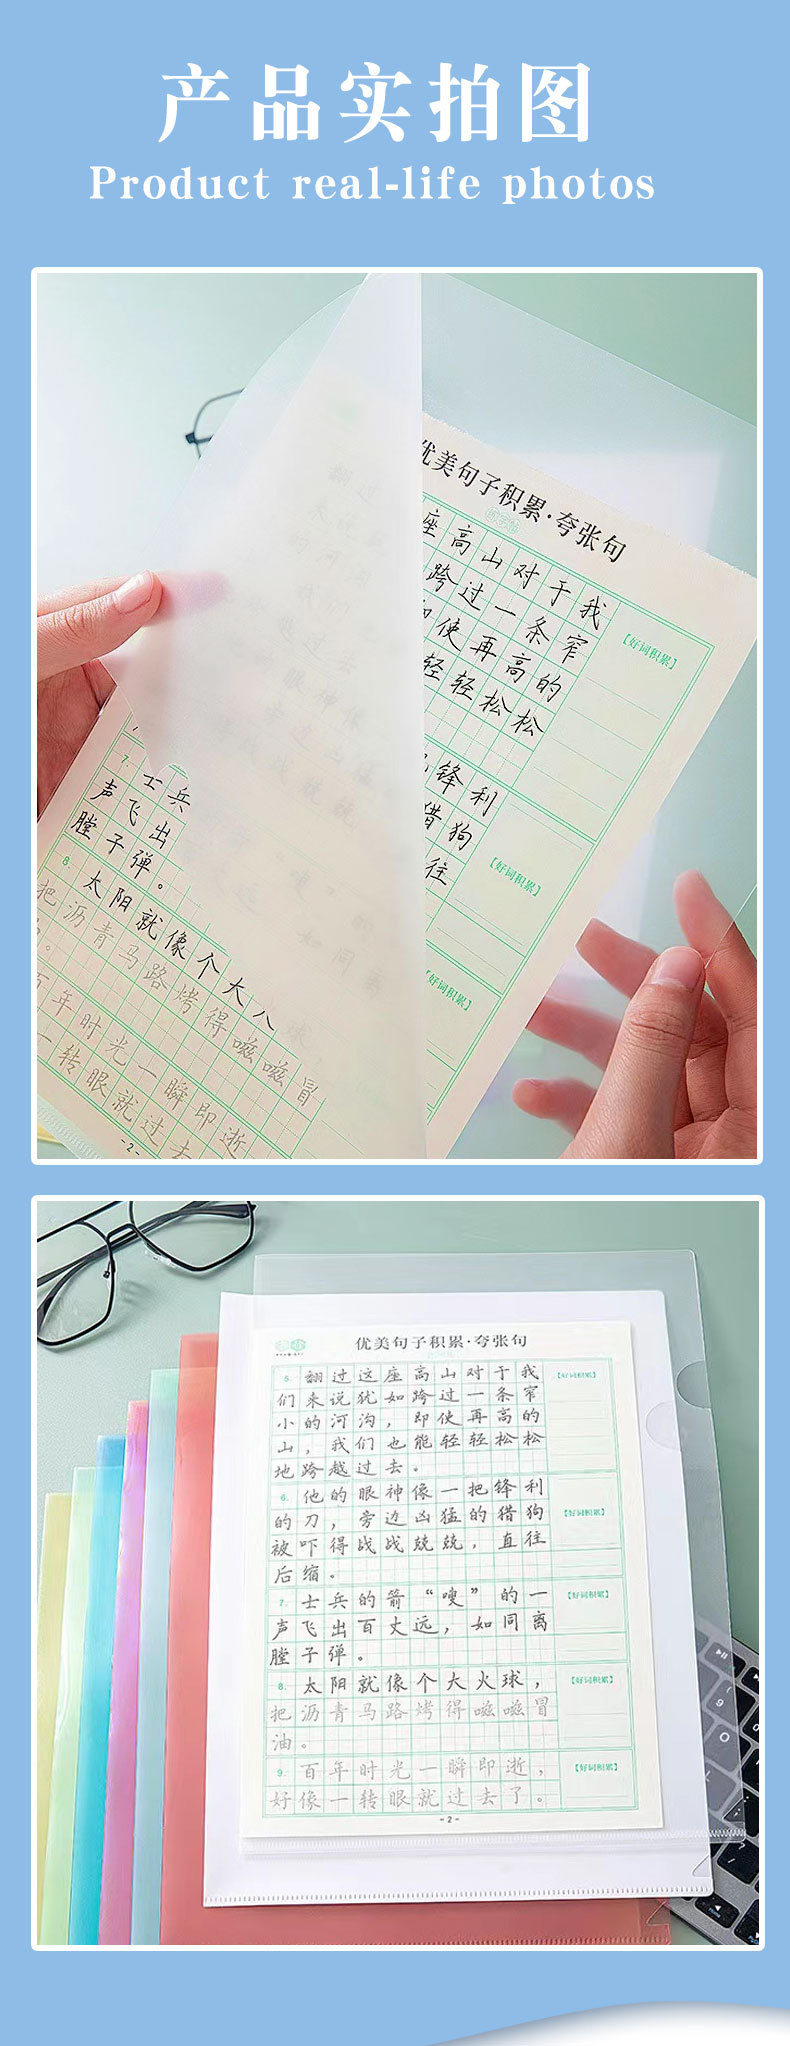 产品实拍图
Product real-life photos
优美句子积累·夸张句
座高山对于我
跨过一条窄
使再高的
轻轻松松
【好词积累】
锋利
猎狗
往
【好词积累】
【好词积累】
7. 士兵
声飞出
膛子弹。
8. 太阳就像个大
把沥青马路烤得嗞嗞冒
百年时光一瞬即逝
一转眼就过去
-2-
优美句子积累·夸张句
5. 翻过这座高山对于我
们来说犹如跨过一条窄
小的河沟，即使再高的
山，我们也能轻轻松松
地跨越过去。
【好词积累】
6. 他的眼神像一把锋利
的刀，旁边凶猛的猎狗
被吓得战战兢兢，直往
后缩。
【好词积累】
7. 士兵的箭“嗖”的一
声飞出百丈远，如同离
膛子弹。
【好词积累】
8. 太阳就像个大火球，
把沥青马路烤得嗞嗞冒
油。
【好词积累】
9. 百年时光一瞬即逝，
好像一转眼就过去了。
【好词积累】
-2-